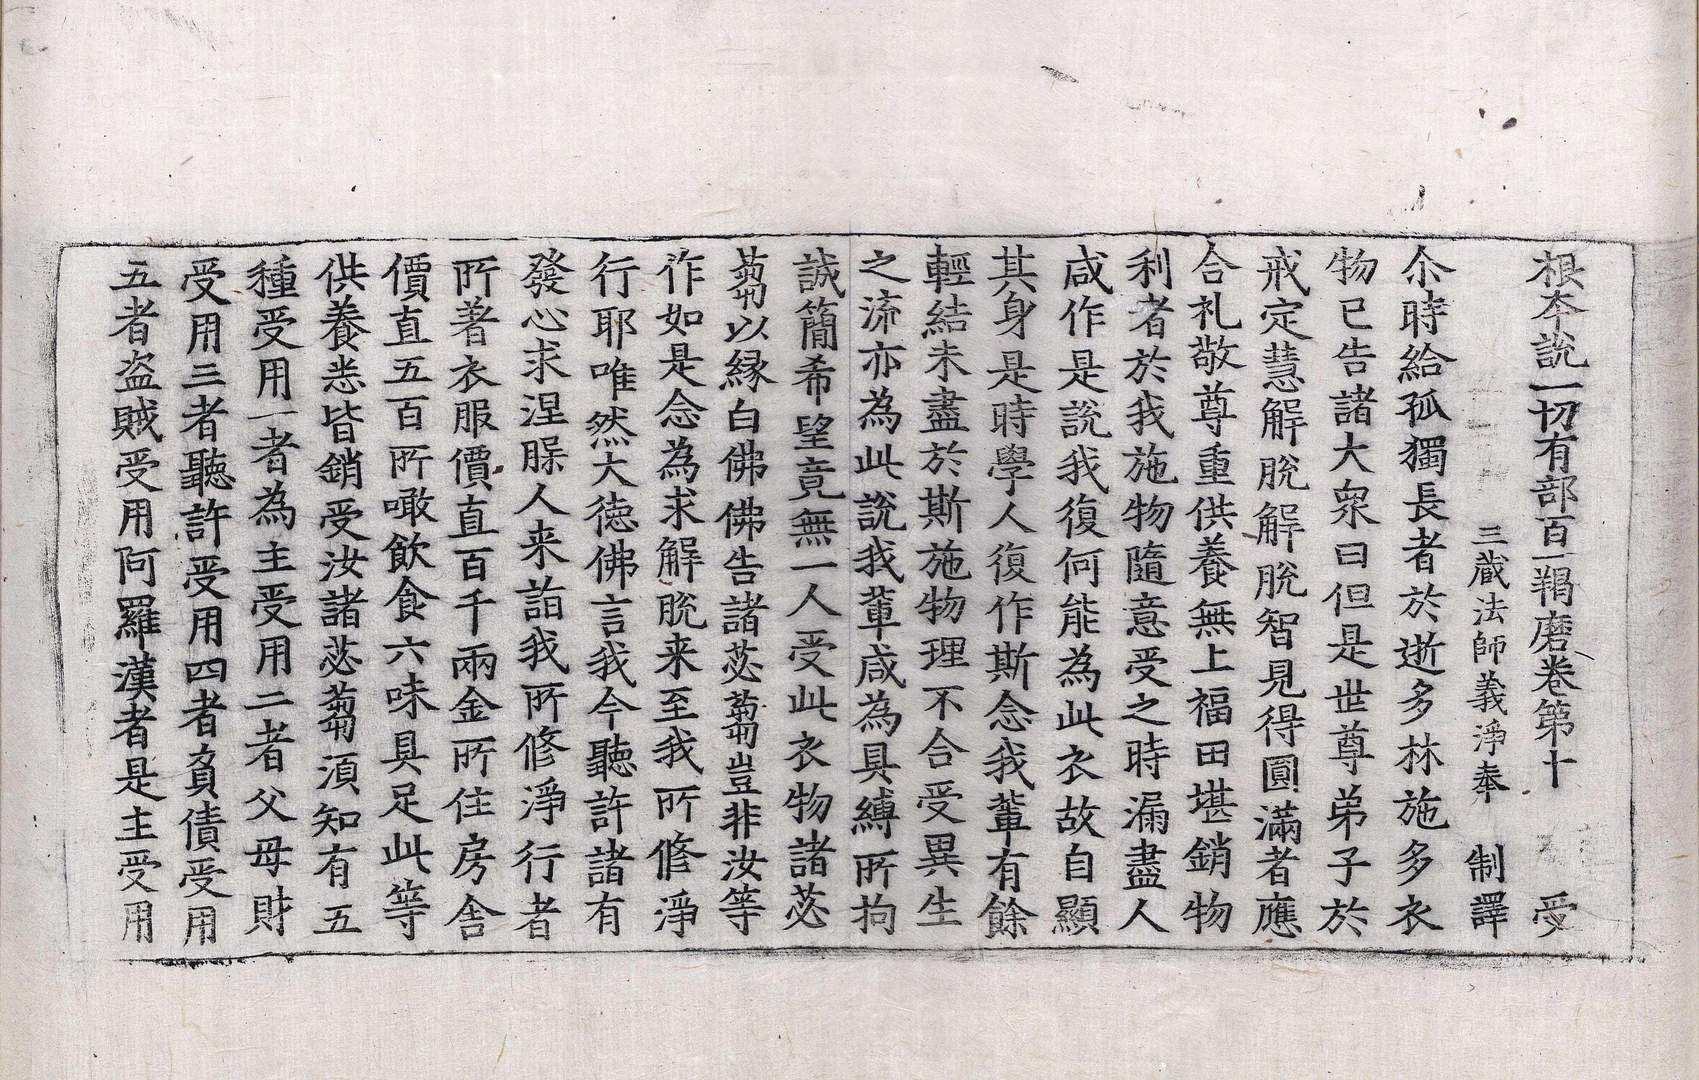 根本説一切有部百一羯磨卷第十 受
三蔵法師義淨奉 制譯
尒時給孤獨長者於逝多林施多衣
物已告諸大衆曰但是世尊弟子於
戒定慧解脫解脫智見得圓滿者應
合礼敬尊重供養無上福田堪銷物
利者於我施物隨意受之時漏盡人
咸作是說我復何能為此衣故自顯
其身是時學人復作斯念我輩有餘
輕結未盡於斯施物理不合受異生
之流亦為此說我輩咸為具縛所拘
誠簡希望竟無一人受此衣物諸苾
蒭以縁白佛佛告諸苾蒭豈非汝等
作如是念為求解脫来至我所俢淨
行耶唯然大徳佛言我今聽許諸有
發心求涅槃人来詣我所修淨行者
所著衣服價直百千兩金所住房舍
價直五百所噉飲食六味具足此等
供養悉皆銷受汝諸苾蒭湏知有五
種受用一者為主受用二者父母財
受用三者聽許受用四者負債受用
五者盜賊受用阿羅漢者是主受用